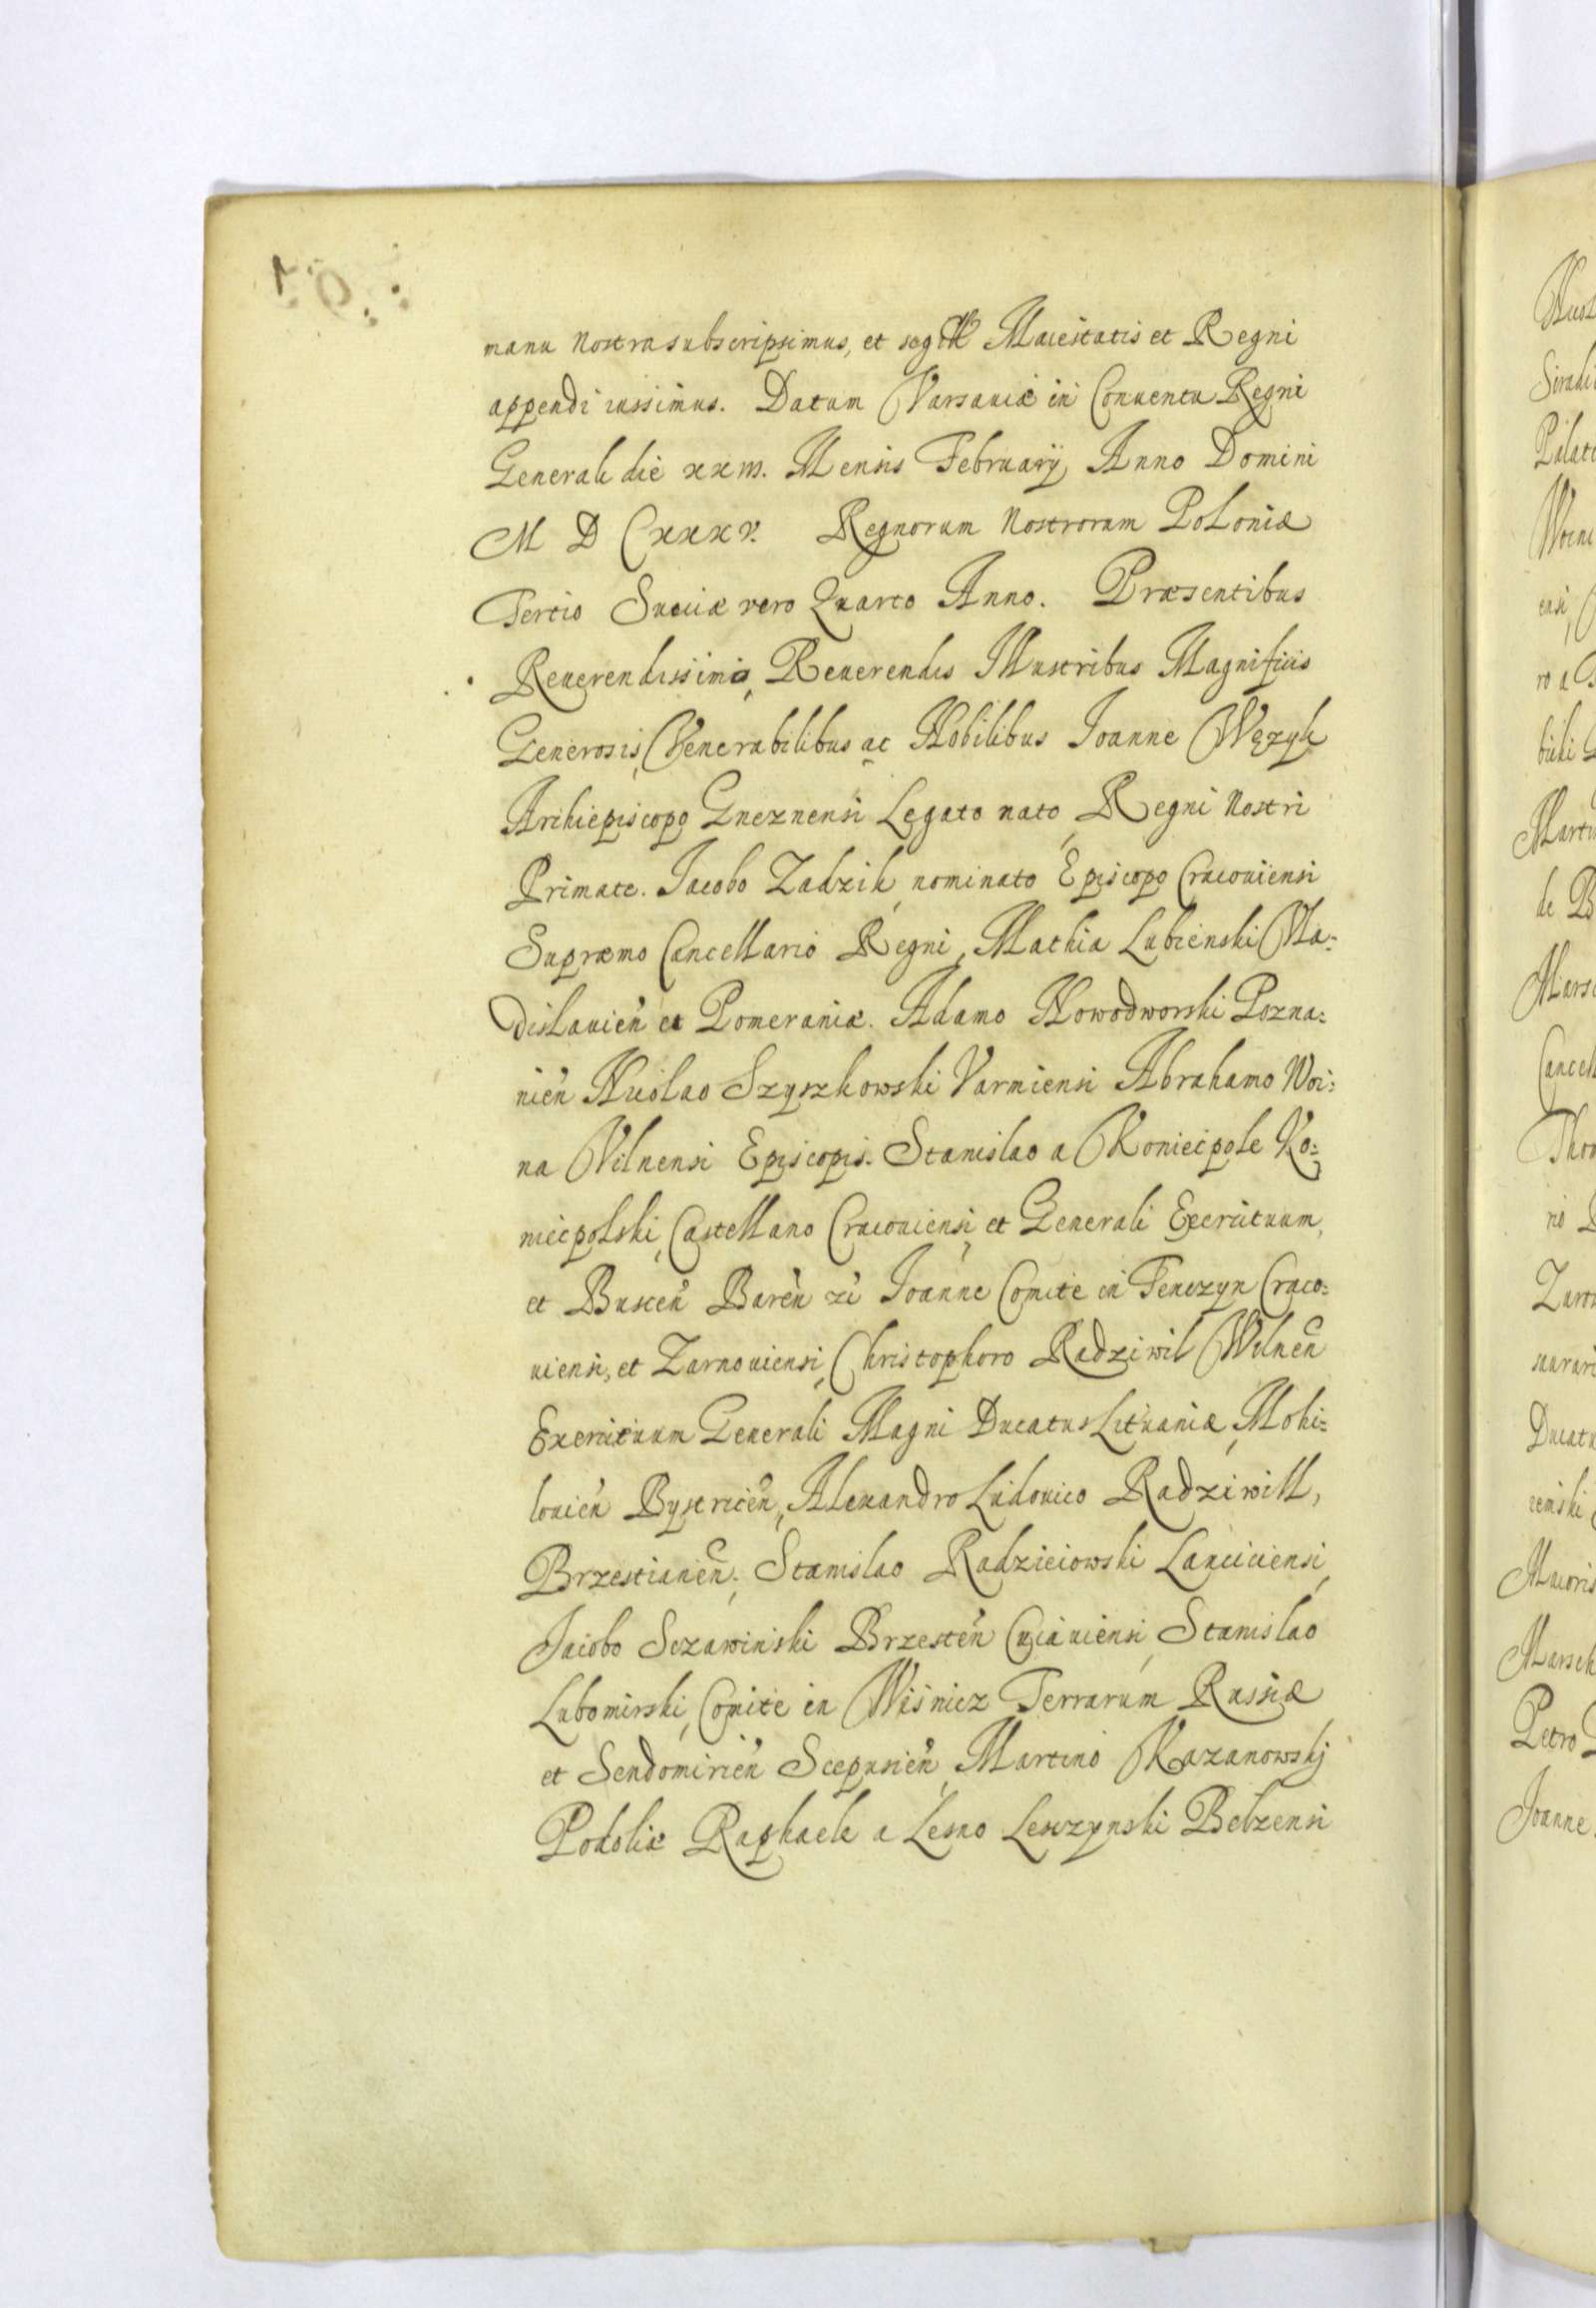 manu nostra subscripsimus, et sigill Maiestatis et Regni
appendi iussimus. Datum Varsaviæ in Conventu Regni
Generali die xxiii. Mensis Februarÿ, Anno Domini
M D Cxxxv. Regnorum Nostrorum Poloniæ
Tertio Sueciæ vero Quarto Anno. Præsentibus
Reuerendissimis, Reuerendis Illustribus Magnificis
Generosis, Venerabilibus ac Nobilibus Ioanne Węzyk
Archiepiscopo Gneznensi Legato nato, Regni Nostri
Primate. Iacobo Zadzik, nominato Episcopo Cracouiensi
Supræmo Cancellario Regni, Mathia Lubienski Wla:
dislauien et Pomeraniæ. Adamo Nowodworski Pozna:
nien Nicolao Szyszkowski Varmiensi Abrahamo Woi:
na Vilnensi Episcopis. Stanislao a Koniecpole Ko:
niecpolski, Castellano Cracouiensi, et Generali Exercituum,
et Buscen Baren Ioanne Comite in Tenczyn Craco:
uiensi, et Zarnouiensi, Christophoro Radziwil Wilnen
Exercituum Generali Magni Ducatus Lituaniæ, Mohi:
louien Bystricen, Alexandro Ludouico Radziwill,
Brzestianen, Stanislao Radzieiowski Lanciciensi,
Iacobo Sczawinski Brzesten Cuiauiensi, Stanislao
Lubomirski, Comite in Wisnicz Terrarum Russiæ
et Sendomirien Scepusien, Martino Kazanowskj
Podoliæ Raphaele a Lesno Lesczynski Belzensi